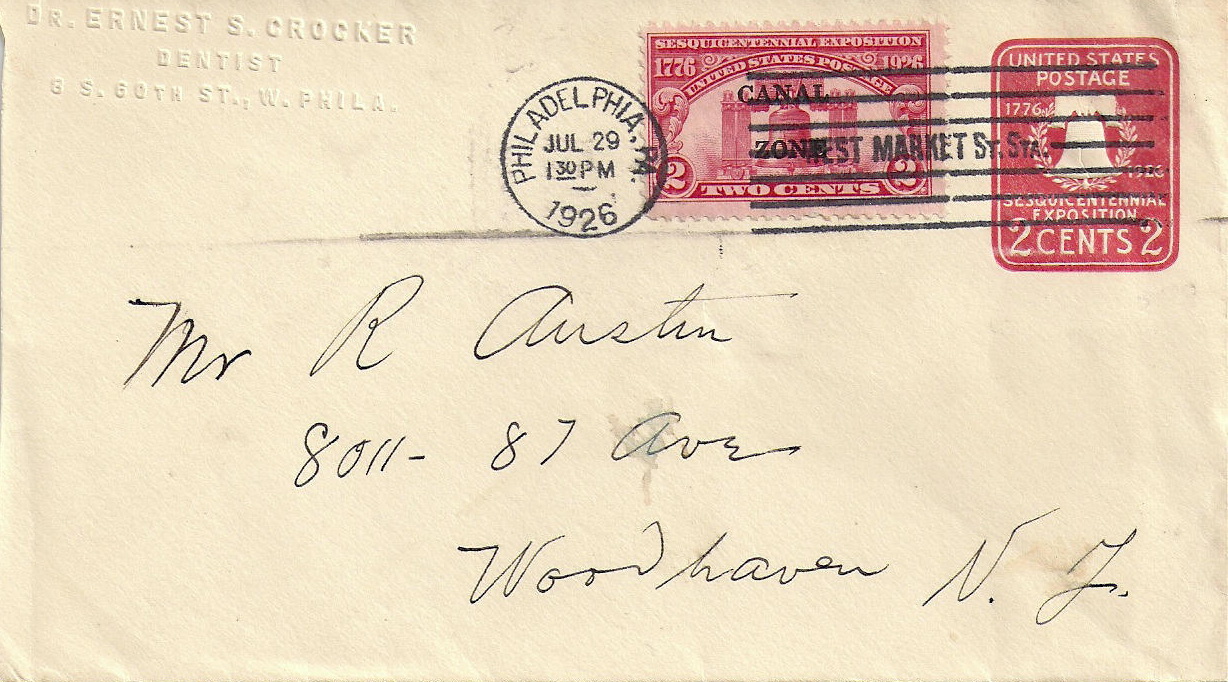 DR. ERNEST S. CROCKER
DENTIST
6 S. 60TH ST., W. PHILA.
PHILADELPHIA, PA.
JUL 29
1 30 PM
1926
SESQUICENTENNIAL EXPOSITION
1776 UNITED STATES POSTAGE 1926
CANAL
ZONE
2 TWO CENTS 2
WEST MARKET ST. STA.
UNITED STATES
POSTAGE
1776
1926
SESQUICENTENNIAL
EXPOSITION
2 CENTS 2
Mr R Austin
8011- 87 Ave
Woodhaven N. Y.